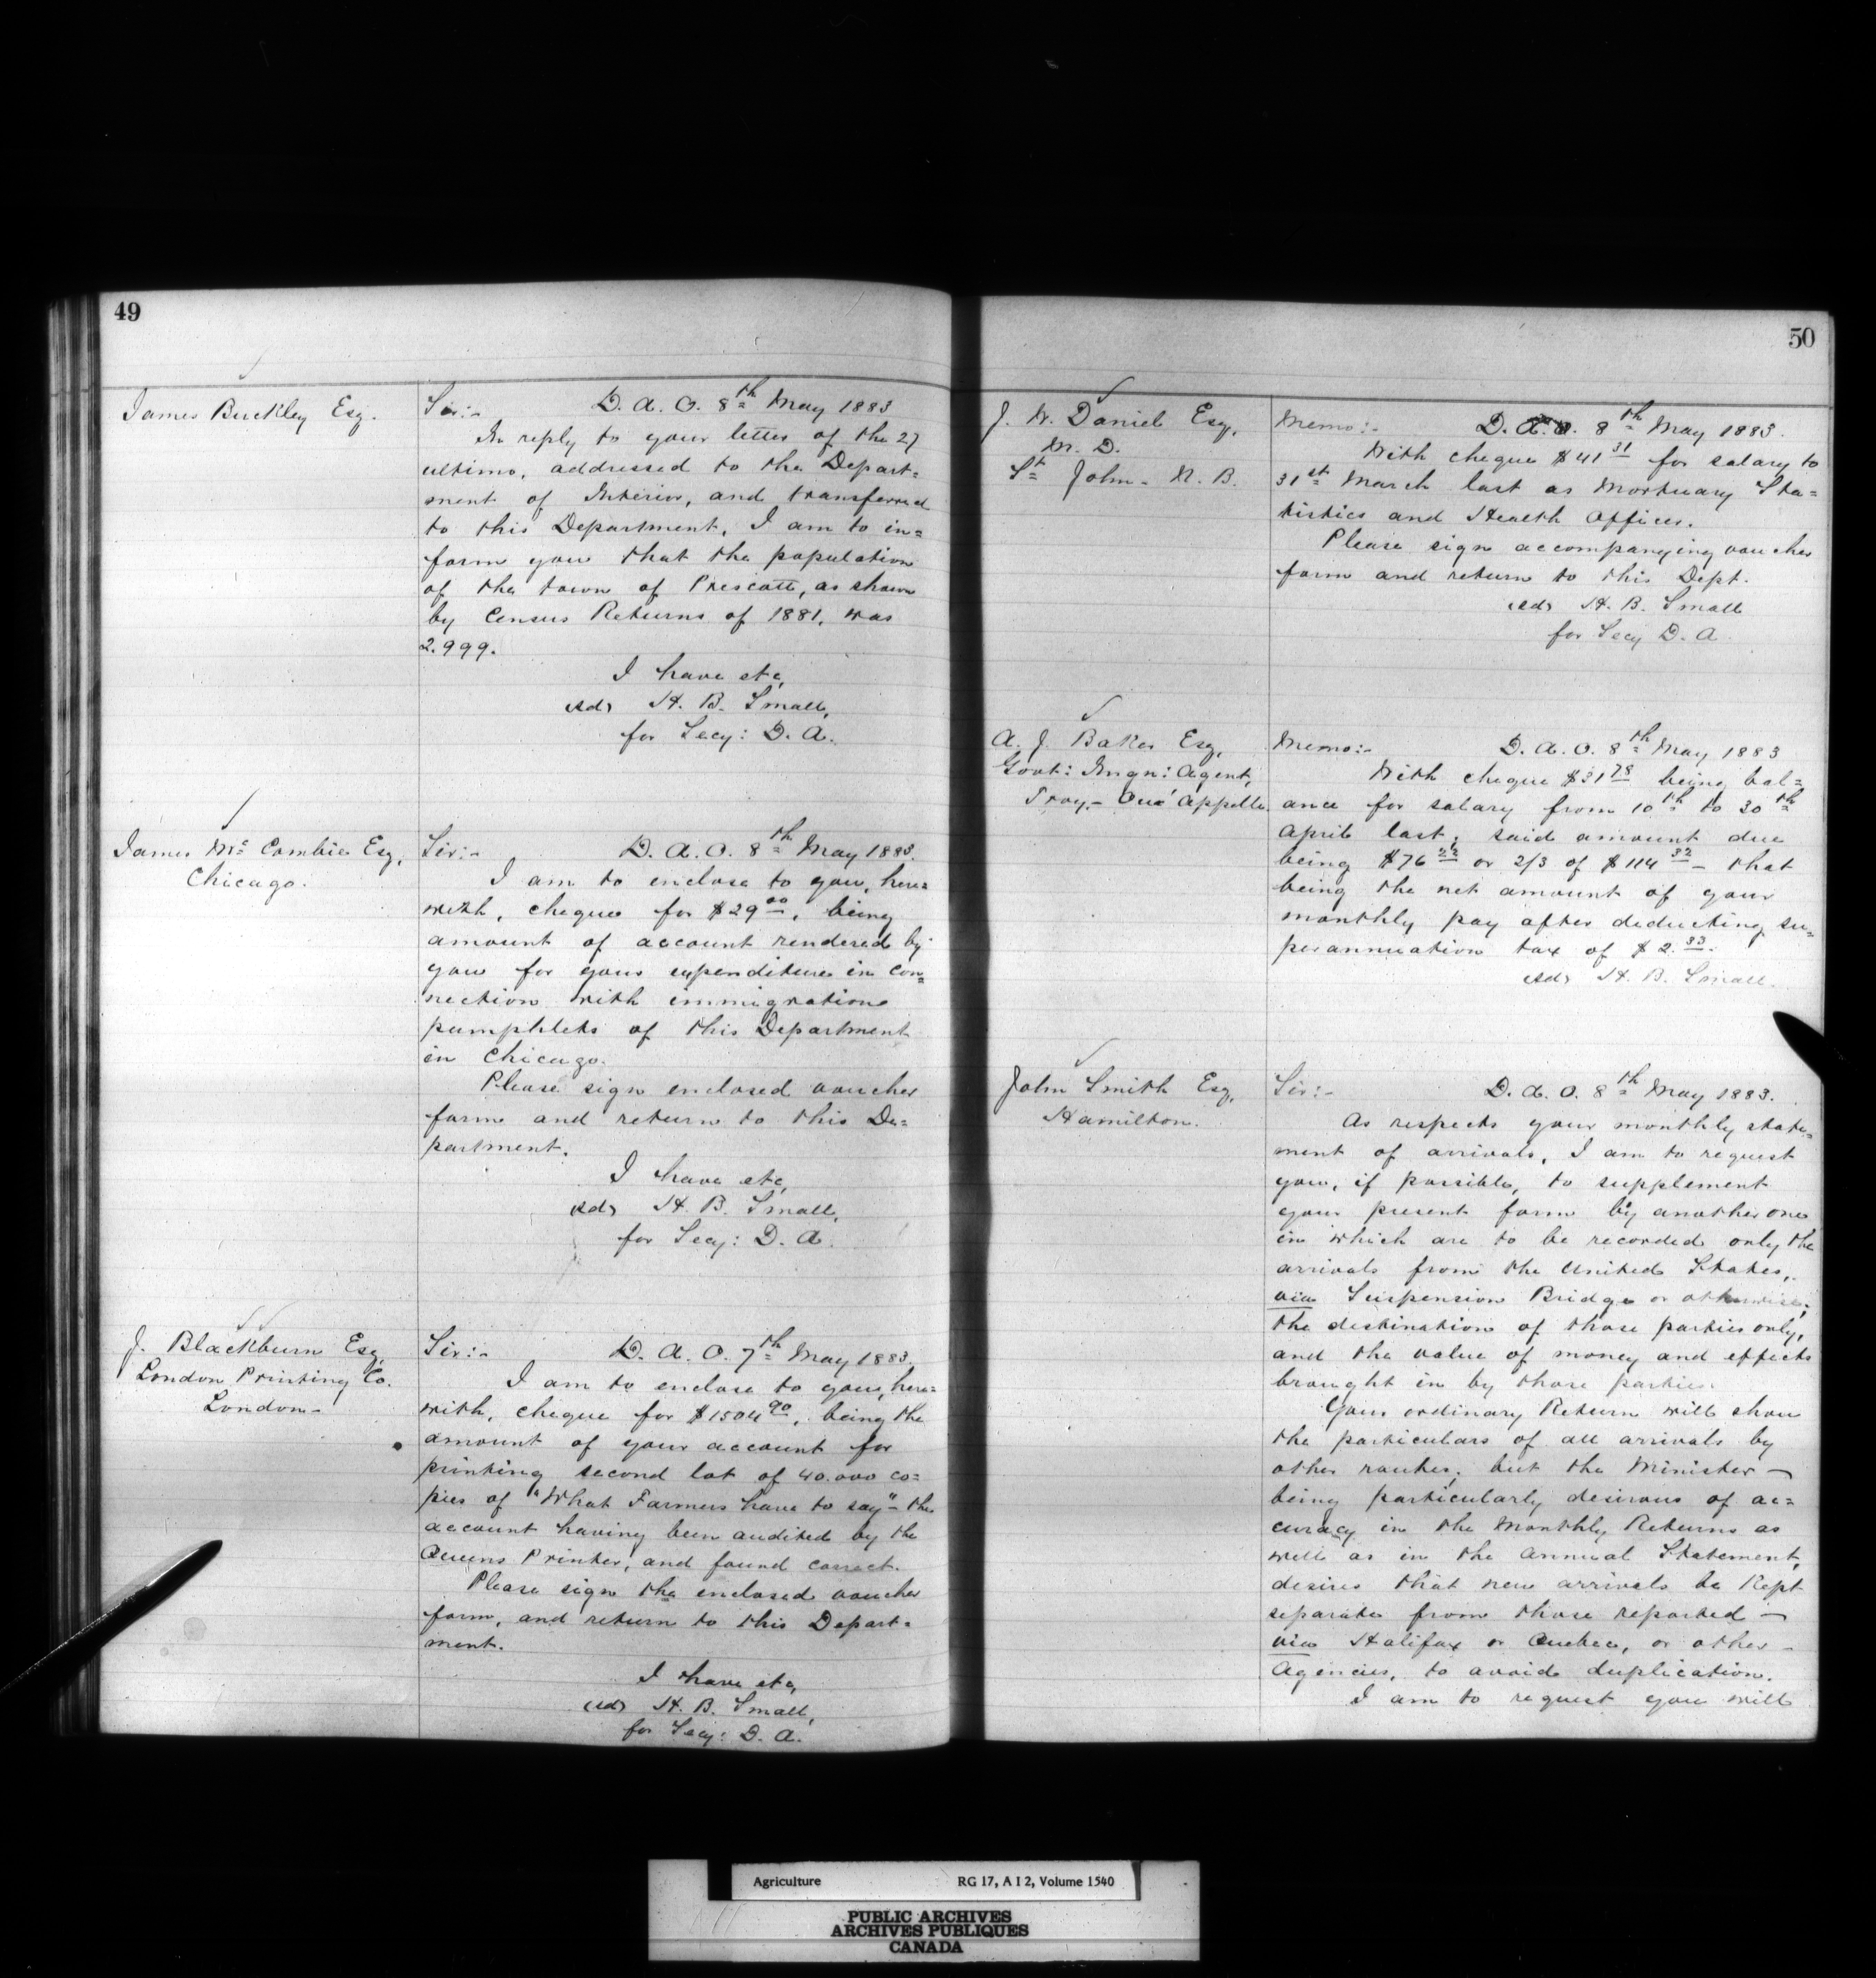 49
James Buckley Esq.
Sir:- D. A. O. 8th May 1883
In reply to your letter of the 27
ultimo, addressed to the Depart=
ment of Interior, and transferred
to this Department, I am to in=
form you that the population
of the town of Prescott, as shown
by Census Returns of 1881, was
2.999.
I have etc,
(sd) H. B. Small,
for Secy: D. A.
James Mc Combie Esq,
Chicago.
Sir:- D. A. O. 8th May 1883.
I am to enclose to you, here=
with, cheque for $29 00, being
amount of account rendered by
you for your expenditure in con=
nection with immigration
pamphlets of this Department
in Chicago.
Please sign enclosed voucher
form and return to this De=
partment.
I have etc,
(sd) H. B. Small,
for Secy: D. A.
J. Blackburn Esq,
London Printing Co.
London-
Sir:- D. A. O. 7th May 1883.
I am to enclose to you, here=
with, cheque for $1504 90, being the
amount of your account for
printing second lot of 40.000 co=
pies of "What Farmers have to say" - the
account having been audited by the
Queens Printer, and found correct.
Please sign the enclosed voucher
form, and return to this Depart=
ment.
I have etc,
(sd) H. B. Small,
for Secy: D. A.
50
J. W. Daniel Esq,
M. D.
St John - N. B.
Memo:- D. A. O. 8th May 1883.
With cheque $41 31 for salary to
31st March last as Mortuary Sta=
tistics and Health Officer.
Please sign accompanying voucher
form and return to this Dept.
(sd) H. B. Small
for Secy D. A.
A. J. Baker Esq,
Govt: Imgn: Agent,
Troy,- Qu' Appelle.
Memo:- D. A. O. 8th May 1883
With cheque $31 78 being bal=
ance for salary from 10th to 30th
April last; said amount due
being $76 22 or 2/3 of $114 32 - that
being the net amount of your
monthly pay after deducting su=
perannuation tax of $2. 33.
(sd) H. B. Small.
John Smith Esq,
Hamilton.
Sir:- D. A. O. 8th May 1883.
As respects your monthly state=
ment of arrivals, I am to request
you, if possible, to supplement
your present form by another one
in which are to be recorded only the
arrivals from the United States,
via Suspension Bridge or otherwise;
the destination of those parties only,
and the value of money and effects
brought in by those parties.
Your ordinary Return will show
the particulars of all arrivals by
other routes; but the Minister -
being particularly desirous of ac=
curacy in the Monthly Returns as
well as in the Annual Statement,
desires that new arrivals be kept
separate from those reported -
via Halifax or Quebec, or other -
Agencies, to avoid duplication.
I am to request you will
Agriculture RG 17, A I 2, Volume 1540
PUBLIC ARCHIVES
ARCHIVES PUBLIQUES
CANADA